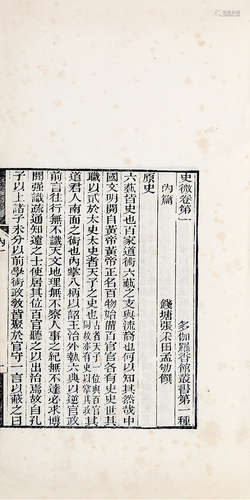 史微卷第一
多伽羅香館叢書第一種
內篇
錢塘張采田孟劬僎
原史
六藝皆史也百家道術六藝之支與流裔也何以知其然哉中
國文明開自黃帝黃帝正名百物始備百官官各有史史世其
職以貳於太史太史者天子之史也
道君人南面之術也內掌八柄以詔王治外執六典以逆官政
前言往行無不識天文地理無不察人事之紀無不達必求博
聞强識疏通知遠之士使居其位百官聽之以出治焉故自孔
子以上諸子未分以前學術政敎皆聚於官守一言以蔽之曰
內一